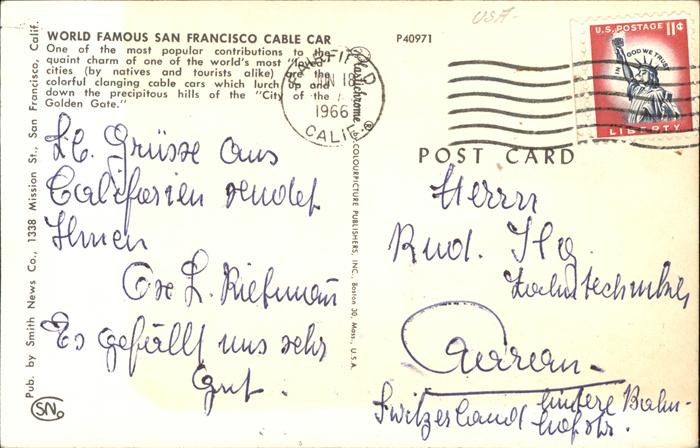 USA-
WORLD FAMOUS SAN FRANCISCO CABLE CAR
One of the most popular contributions to the
quaint charm of one of the world's most "loved"
cities (by natives and tourists alike) are the
colorful clanging cable cars which lurch up and
down the precipitous hills of the "City of the
Golden Gate."
P40971
JUN 18
1966
CALIF.
U.S. POSTAGE 11¢
IN GOD WE TRUST
LIBERTY
POST CARD
Lb. Grüsse aus
Californien sendet
Ihnen
L.
Es gefällt uns sehr
gut.
Herrn
Rud. Ilg
Zahntechniker
Aarau-
hintere Bahn-
hofstr.
Switzerland
Pub. by Smith News Co., 1338 Mission St., San Francisco, Calif.
Plastichrome ®
COLOURPICTURE PUBLISHERS, INC., Boston 30, Mass., U.S.A.
SN